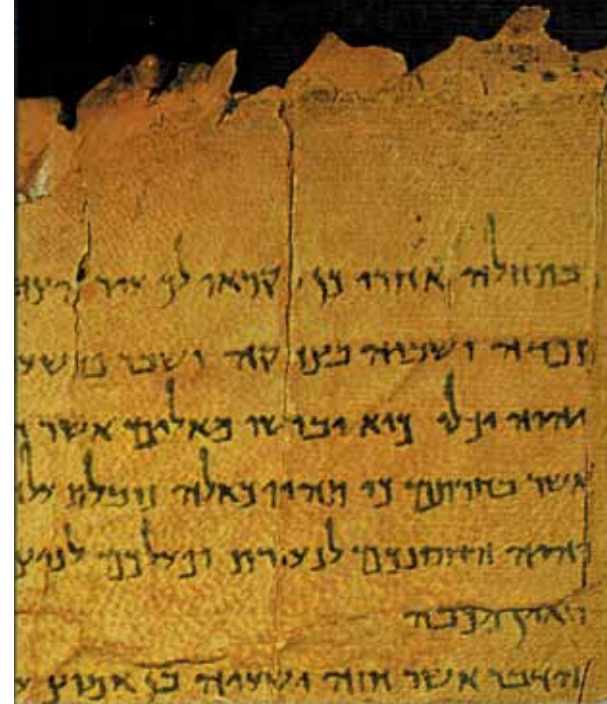 אחרי כן יקראו לך עיר
תפדה ושביה בצדקה ושבר
יהוה יכלו כיא יבושו מאלים אשר
אשר בחרתם כי תהיו כאלה
והיה החסנכם לנעורת ופעלכם
ואין מכבה
הדבר אשר חזה ישעיה בן אמוץ